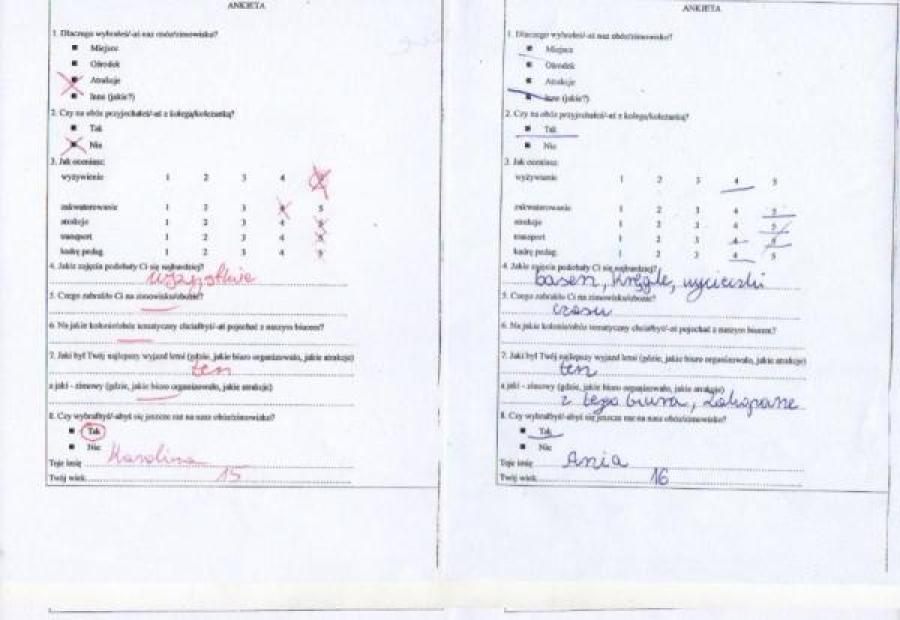 ANKIETA
1. Dlaczego wybrałeś/-aś nasz obóz/zimowisko?
Miejsce
Ośrodek
Atrakcje
Inne (jakie?)
2. Czy na obóz przyjechałeś/-aś z kolegą/koleżanką?
Tak
Nie
3. Jak oceniasz:
wyżywienie 1 2 3 4
zakwaterowanie 1 2 3 4 5
atrakcje 1 2 3 4 5
transport 1 2 3 4 5
kadrę pedag. 1 2 3 4 5
4. Jakie zajęcia podobały Ci się najbardziej?
wszystkie
5. Czego zabrakło Ci na zimowisku/obozie?
6. Na jakie kolonie/obóz tematyczny chciałbyś/-aś pojechać z naszym biurem?
7. Jaki był Twój najlepszy wyjazd letni (gdzie, jakie biuro organizowało, jakie atrakcje)
ten
a jaki - zimowy (gdzie, jakie biuro organizowało, jakie atrakcje)
8. Czy wybrałbyś/-abyś się jeszcze raz na nasz obóz/zimowisko?
Tak
Nie
Twoje imię Karolina
Twój wiek 15
ANKIETA
1. Dlaczego wybrałeś/-aś nasz obóz/zimowisko?
Miejsce
Ośrodek
Atrakcje
Inne (jakie?)
2. Czy na obóz przyjechałeś/-aś z kolegą/koleżanką?
Tak
Nie
3. Jak oceniasz:
wyżywienie 1 2 3 4 5
zakwaterowanie 1 2 3 4 5
atrakcje 1 2 3 4 5
transport 1 2 3 4 5
kadrę pedag. 1 2 3 4 5
4. Jakie zajęcia podobały Ci się najbardziej?
basen, kręgle, wycieczki
5. Czego zabrakło Ci na zimowisku/obozie?
czasu
6. Na jakie kolonie/obóz tematyczny chciałbyś/-aś pojechać z naszym biurem?
7. Jaki był Twój najlepszy wyjazd letni (gdzie, jakie biuro organizowało, jakie atrakcje)
ten
a jaki - zimowy (gdzie, jakie biuro organizowało, jakie atrakcje)
z tego biura, Zakopane
8. Czy wybrałbyś/-abyś się jeszcze raz na nasz obóz/zimowisko?
Tak
Nie
Twoje imię Ania
Twój wiek 16